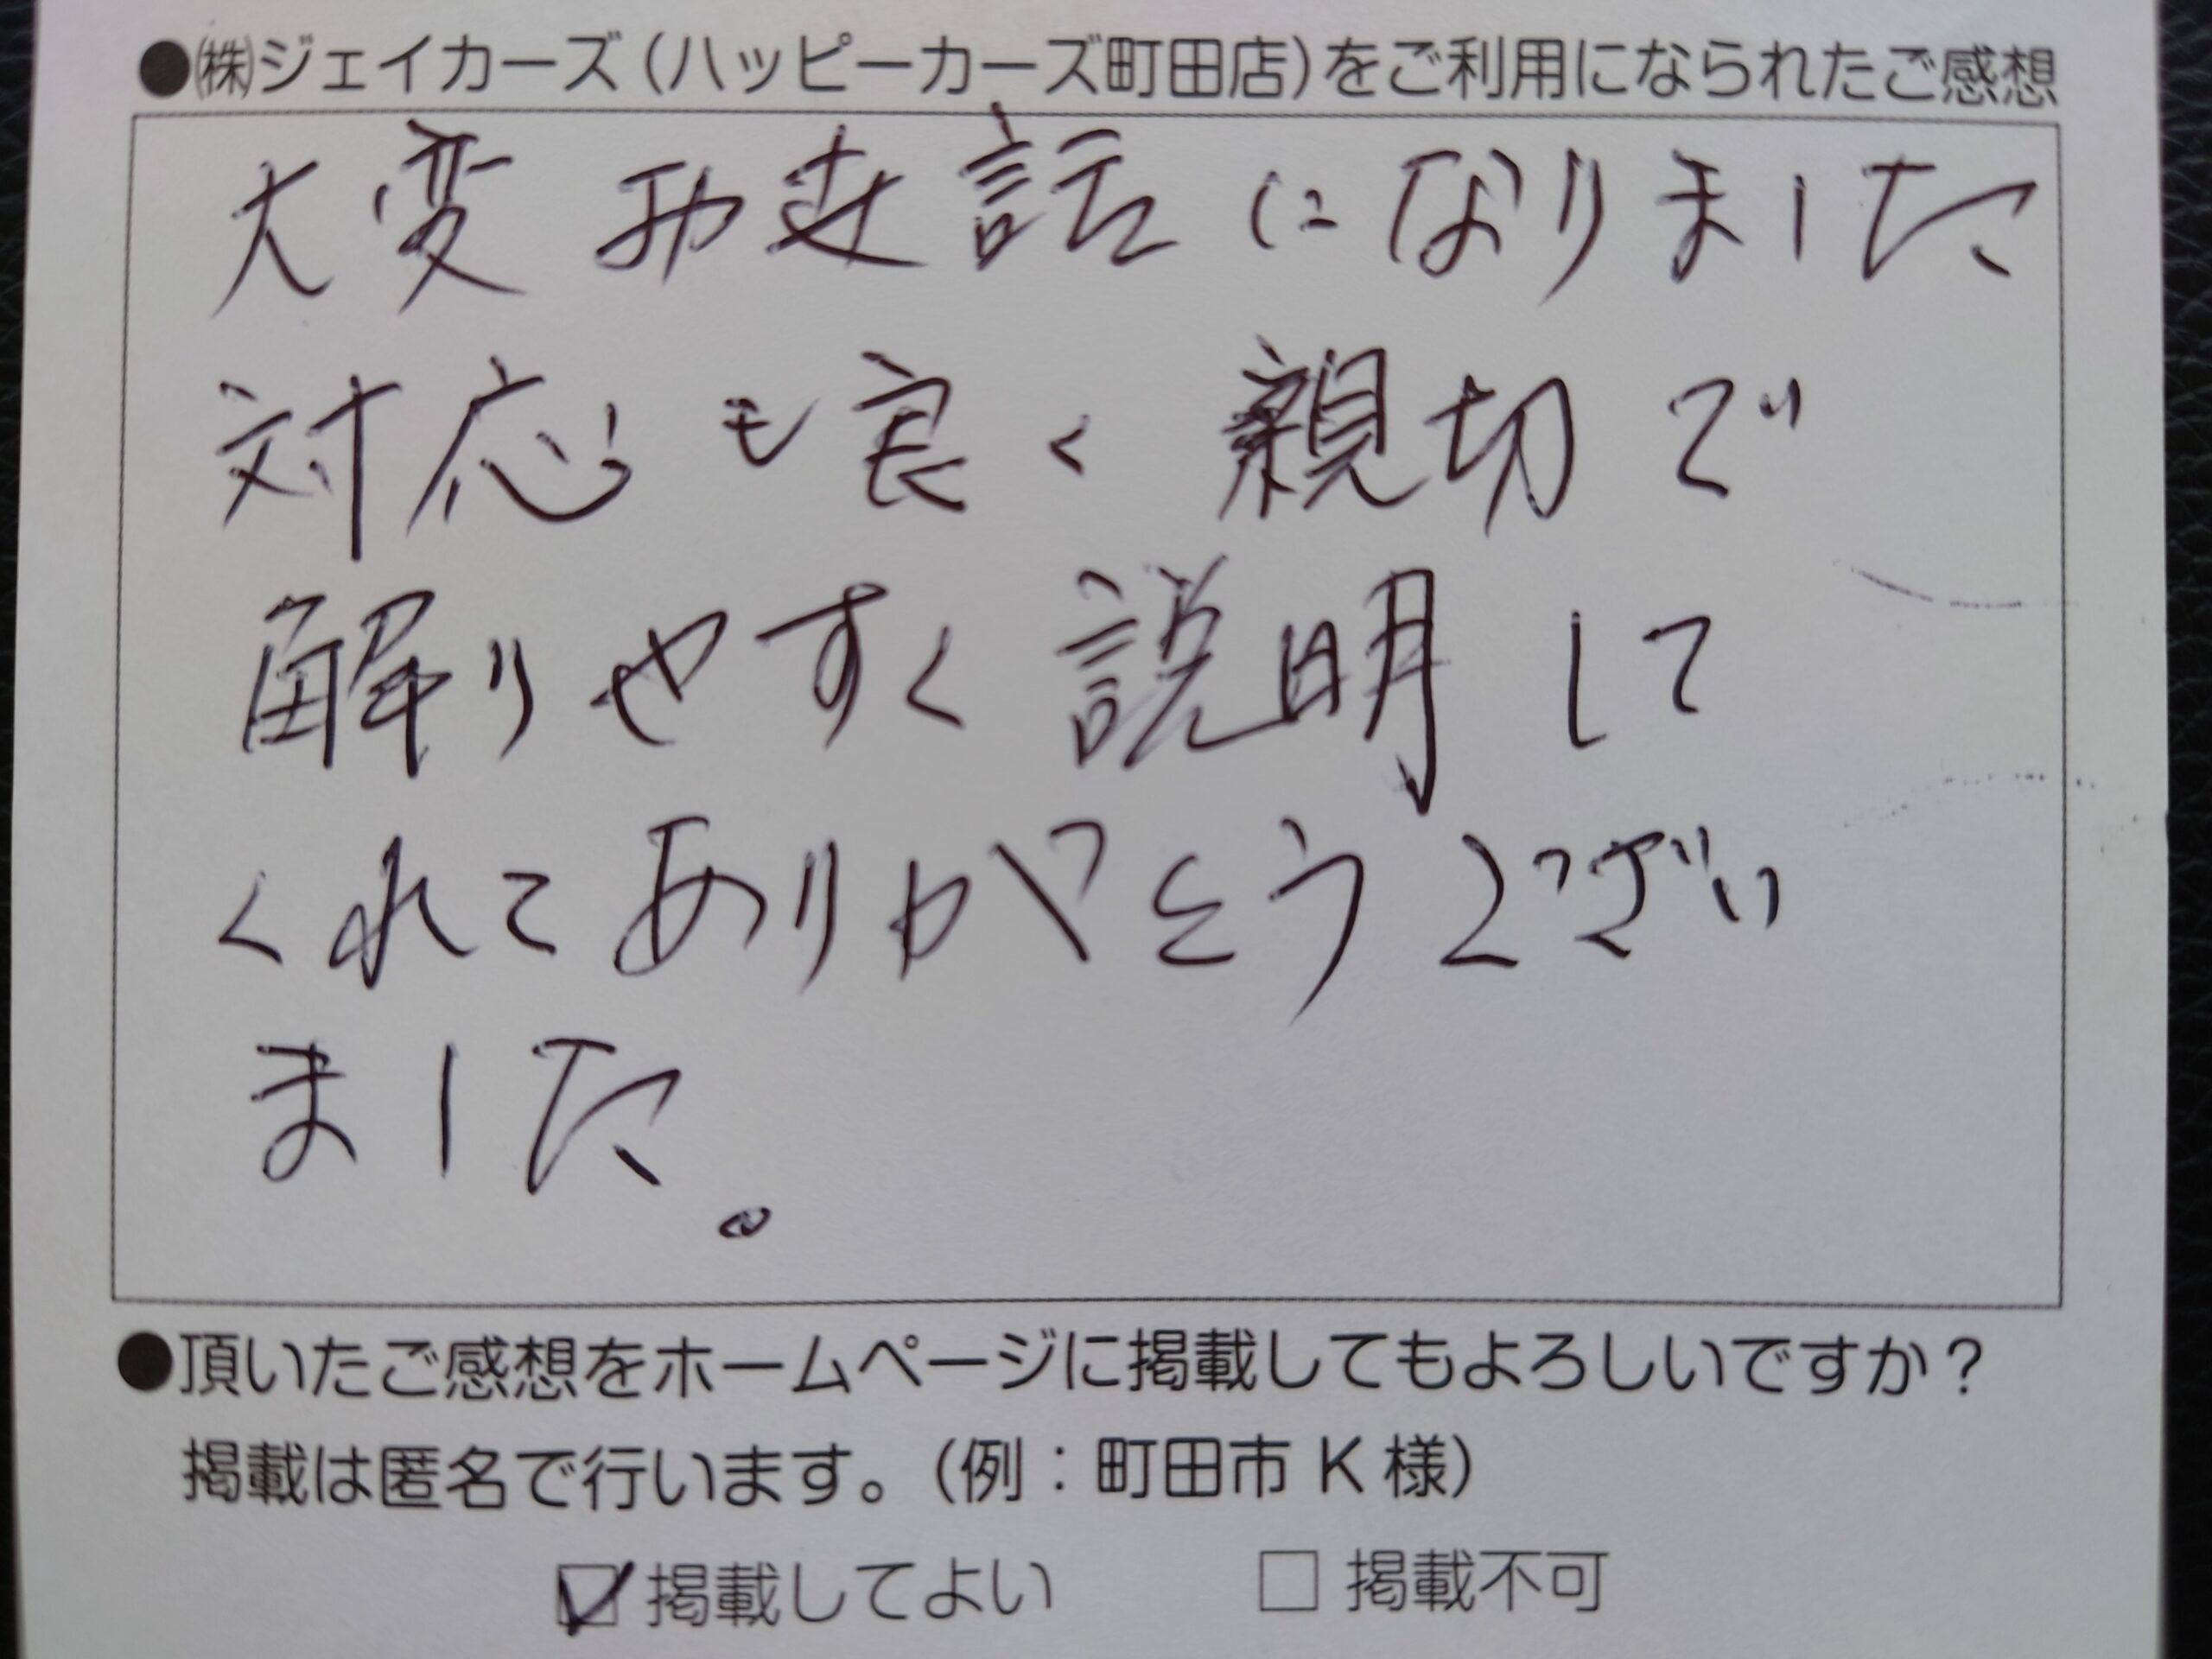 ●㈱ジェイカーズ（ハッピーカーズ町田店）をご利用になられたご感想
大変お世話になりました
対応も良く親切で
解りやすく説明して
くれてありがとうござい
ました。
●頂いたご感想をホームページに掲載してもよろしいですか？
掲載は匿名で行います。（例：町田市 K 様）
☑掲載してよい　□掲載不可